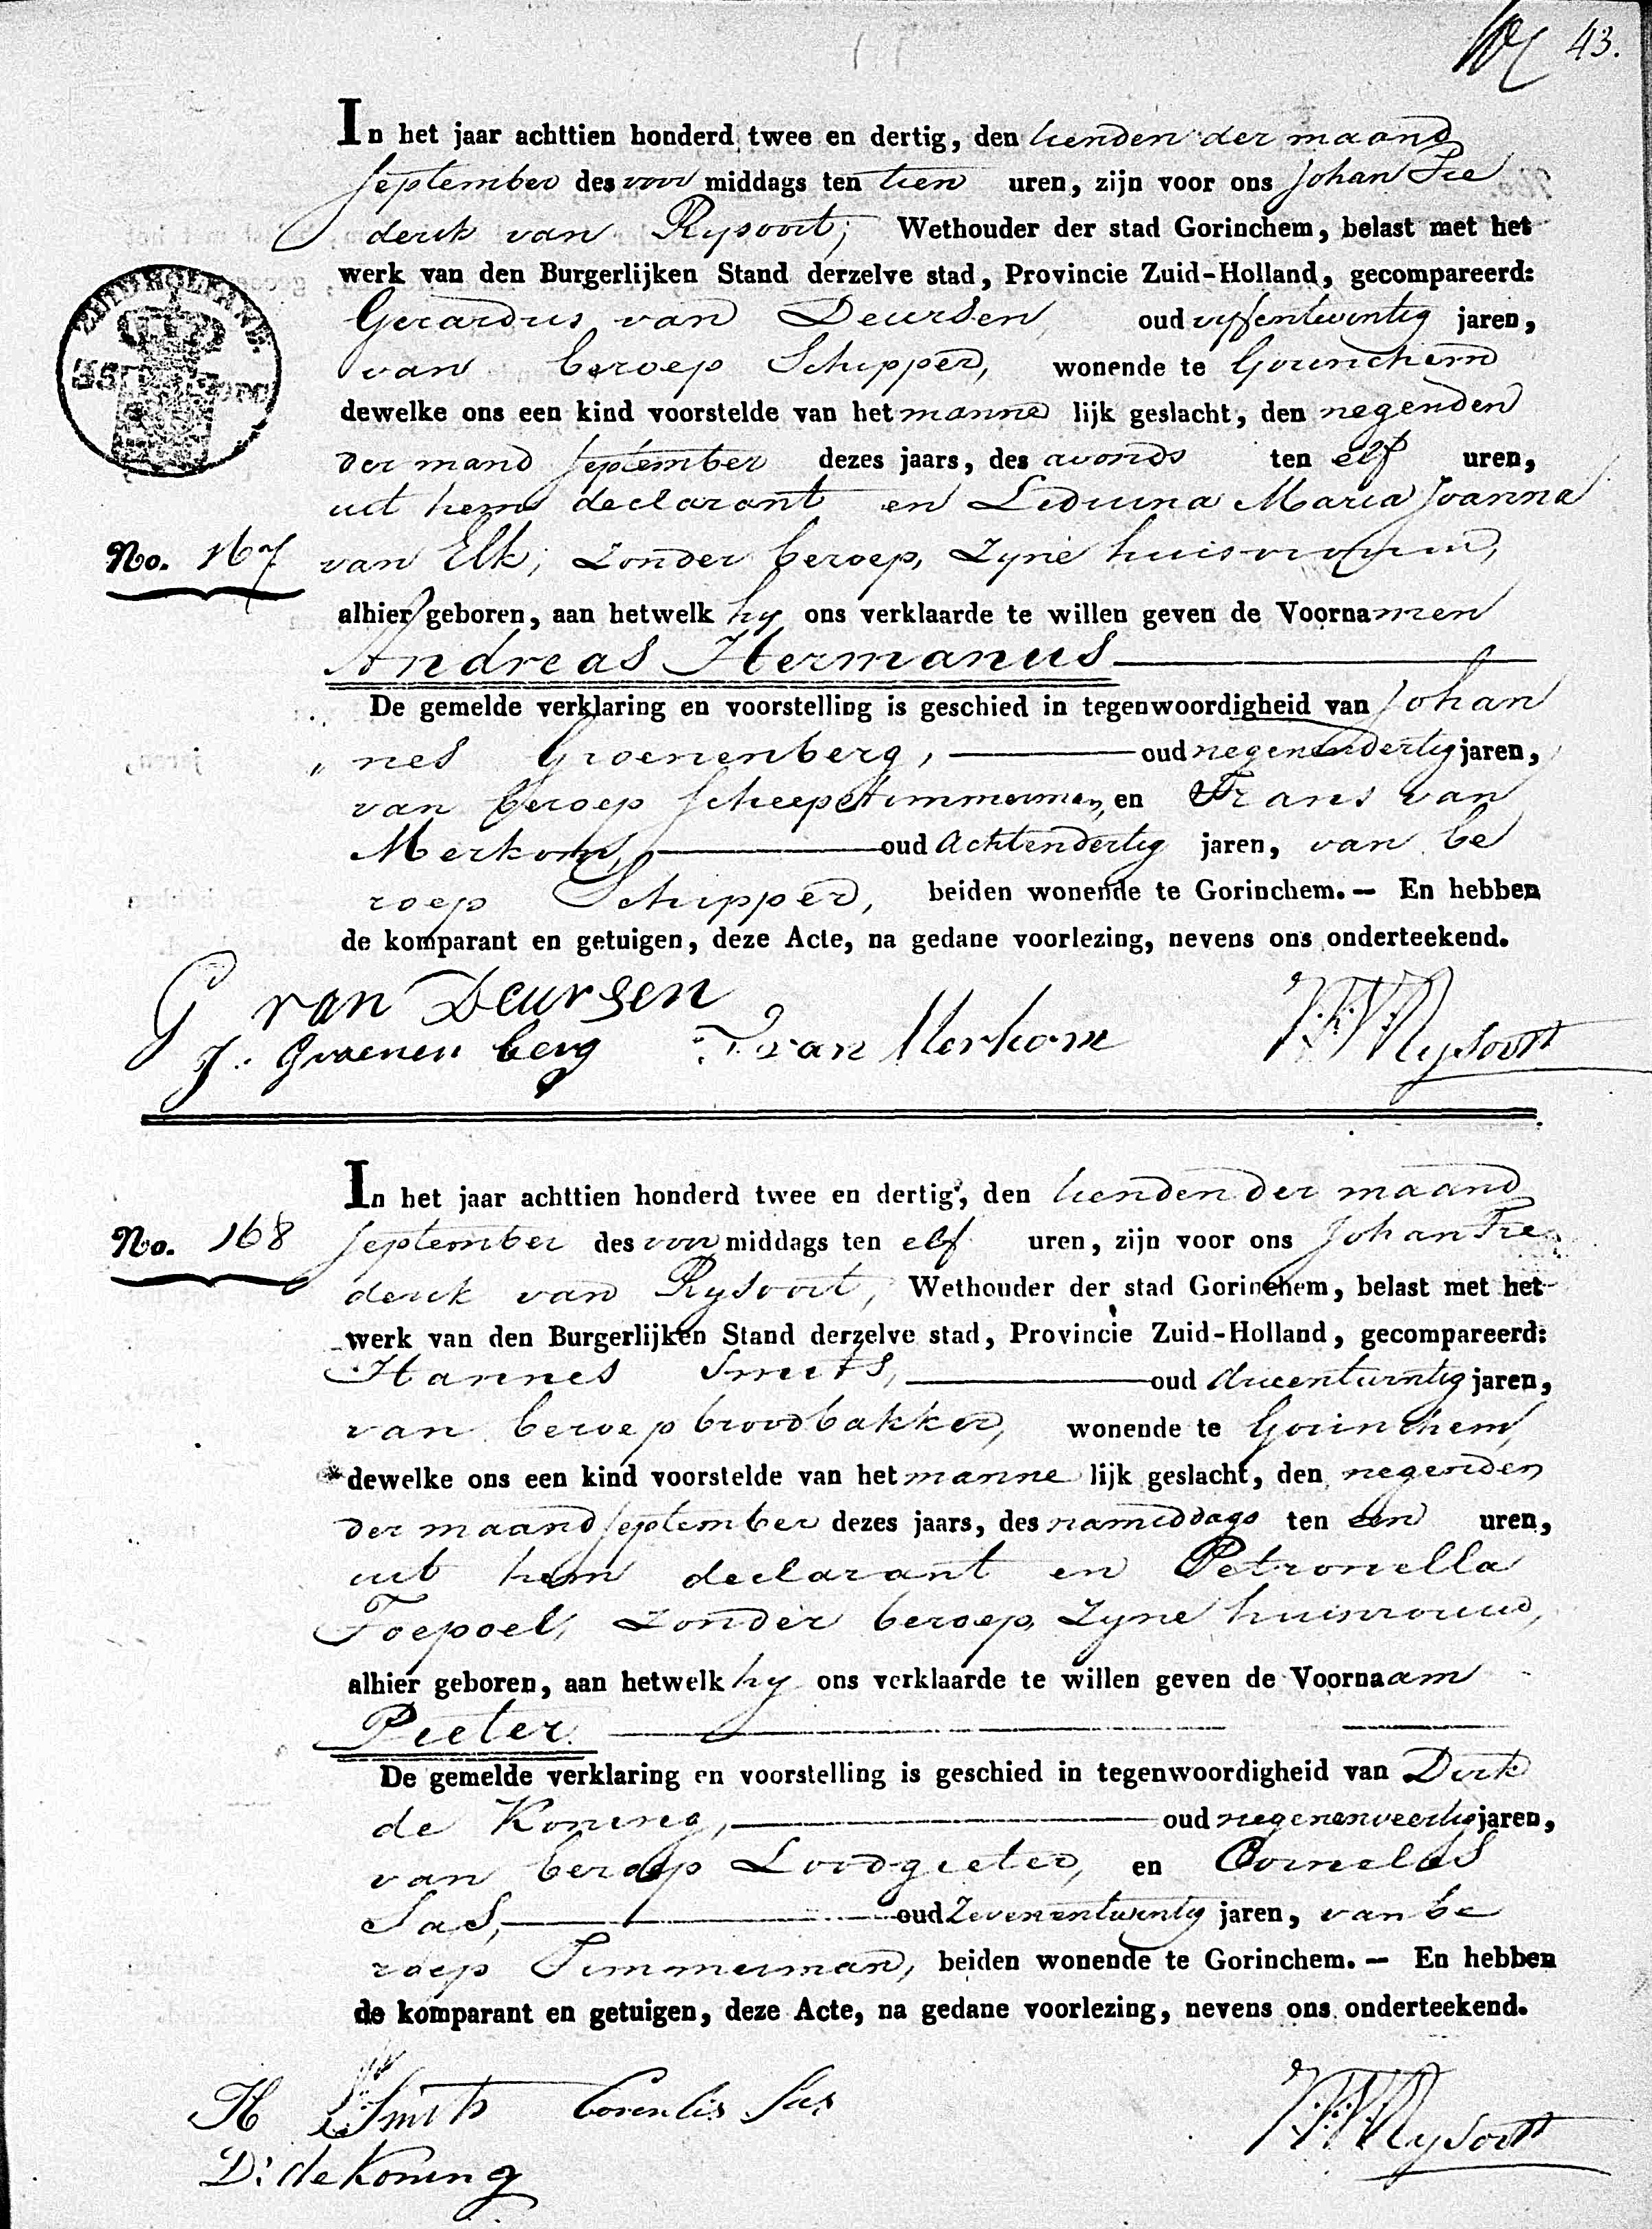 43.
In het jaar achttien honderd twee en dertig, den tienden der maand
September des voor middags ten tien uren, zijn voor ons Johan Fre
derik van Rysoort, Wethouder der stad Gorinchem, belast met het
werk van den Burgerlijken Stand derzelve stad, Provincie Zuid-Holland, gecompareerd:
Gerardus van Deursen oud vyfentwintig jaren,
van beroep Schipper, wonende te Gorinchem
dewelke ons een kind voorstelde van het manne lijk geslacht, den negenden
der mand September dezes jaars, des avonds ten elf uren,
uit hem declarant en Liduina Maria Joanna
No. 167 van Elk, zonder beroep, zyne huisvrouw,
alhier geboren, aan hetwelk hy ons verklaarde te willen geven de Voornamen
Andreas Hermanus
De gemelde verklaring en voorstelling is geschied in tegenwoordigheid van Johan
nes Groenenberg, oud negenendertig jaren,
van beroep Scheepstimmerman, en Frans van
Merkom, oud Achtendertig jaren, van be
roep Schipper, beiden wonende te Gorinchem. — En hebben
de komparant en getuigen, deze Acte, na gedane voorlezing, nevens ons onderteekend.
G van Deursen
J. Groenen berg F van Merkom J.F.V.Rysoort
In het jaar achttien honderd twee en dertig, den tienden der maand
No. 168 September des voor middags ten elf uren, zijn voor ons Johan Fre
derik van Rysoort, Wethouder der stad Gorinchem, belast met het
werk van den Burgerlijken Stand derzelve stad, Provincie Zuid-Holland, gecompareerd:
Hannes Smits, oud drieentwintig jaren,
van beroep broodbakker, wonende te Gorinchem,
dewelke ons een kind voorstelde van het manne lijk geslacht, den negenden
der maand September dezes jaars, des namiddags ten een uren,
uit hem declarant en Petronella
Toepoel, zonder beroep, zyne huisvrouw,
alhier geboren, aan hetwelk hy ons verklaarde te willen geven de Voornaam
Pieter.
De gemelde verklaring en voorstelling is geschied in tegenwoordigheid van Dirk
de Koning, oud negenenveertig jaren,
van beroep Loodgieter, en Cornelis
Sas, oud Zevenentwintig jaren, van be
roep Timmerman, beiden wonende te Gorinchem. — En hebben
de komparant en getuigen, deze Acte, na gedane voorlezing, nevens ons onderteekend.
H Smits Cornelis Sas J.F.V.Rysoort
D: de Koning